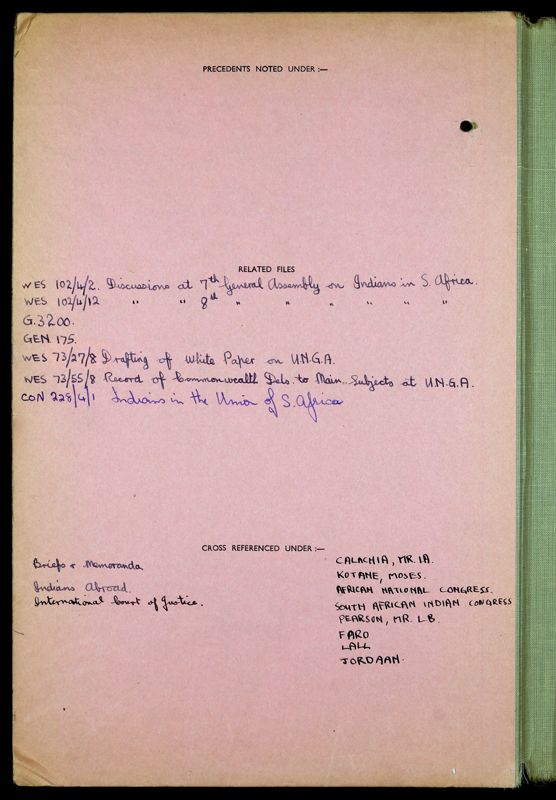 PRECEDENTS NOTED UNDER :—
RELATED FILES
WES 102/4/2. Discussions at 7th General Assembly on Indians in S. Africa.
WES 102/4/12 " " 8th " " " " " "
G.3200.
GEN 175.
WES 73/27/8 Drafting of White Paper on U.N.G.A.
WES 73/55/8 Record of Commonwealth Dels. to Main Subjects at U.N.G.A.
CON 228/4/1 Indians in the Union of S. Africa
CROSS REFERENCED UNDER :—
Briefs & Memoranda
Indians Abroad.
International Court of Justice.
CALACHIA, MR. IA.
KOTANE, MOSES.
AFRICAN NATIONAL CONGRESS.
SOUTH AFRICAN INDIAN CONGRESS
PEARSON, MR. L.B.
FARO
LALL
JORDAAN.